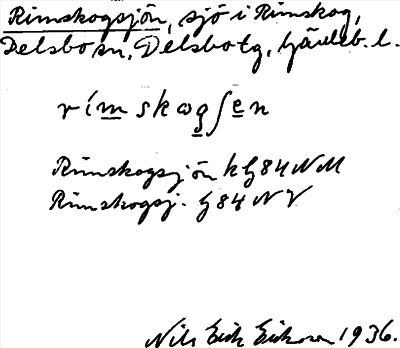 Rimskogsjön, sjö i Rimskog,
Delsbo sn, Delsbo tg, Gävleb. l.
rím skωgʃen
Rimskogsjön k G84 NM
Rimskogsj. G 84 NV
Nils Erik Eriksson 1936.